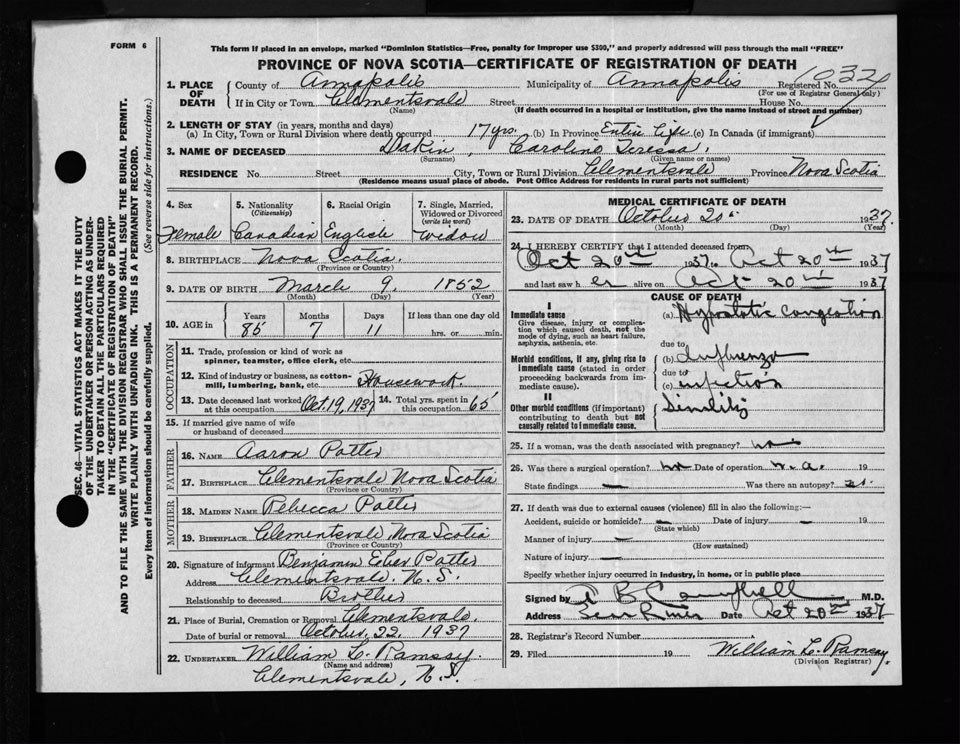 FORM 6
This form if placed in an envelope, marked "Dominion Statistics—Free, penalty for improper use $300," and properly addressed will pass through the mail "FREE"
PROVINCE OF NOVA SCOTIA—CERTIFICATE OF REGISTRATION OF DEATH
1. PLACE OF DEATH County of Annapolis Municipality of Annapolis Registered No. 1032
(For use of Registrar General only)
If in City or Town Clementsvale Street House No.
(Name) (If death occurred in a hospital or institution, give the name instead of street and number)
2. LENGTH OF STAY (in years, months and days)
(a) In City, Town or Rural Division where death occurred 17 yrs. (b) In Province Entire Life (c) In Canada (if immigrant)
3. NAME OF DECEASED Dakin, Caroline Teressa.
(Surname) (Given name or names)
RESIDENCE No. Street City, Town or Rural Division Clementsvale Province Nova Scotia
(Residence means usual place of abode. Post Office Address for residents in rural parts not sufficient)
4. Sex 5. Nationality (Citizenship) 6. Racial Origin 7. Single, Married, Widowed or Divorced (write the word)
Female Canadian English Widow
8. BIRTHPLACE Nova Scotia.
(Province or Country)
9. DATE OF BIRTH March 9, 1852
(Month) (Day) (Year)
10. AGE in Years Months Days If less than one day old
85 7 11 hrs. or min.
OCCUPATION
11. Trade, profession or kind of work as spinner, teamster, office clerk, etc.
12. Kind of industry or business, as cotton-mill, lumbering, bank, etc. Housework.
13. Date deceased last worked at this occupation Oct. 19, 1937 14. Total yrs. spent in this occupation 65
15. If married give name of wife or husband of deceased
FATHER
16. NAME Aaron Potter
17. BIRTHPLACE Clementsvale Nova Scotia
(Province or Country)
MOTHER
18. MAIDEN NAME Rebecca Potter
19. BIRTHPLACE Clementsvale, Nova Scotia
(Province or Country)
20. Signature of informant Benjamin Potter
Address Clementsvale. N. S.
Relationship to deceased Brother
21. Place of Burial, Cremation or Removal Clementsvale.
Date of burial or removal October 22, 1937
22. UNDERTAKER William L. Ramsay.
(Name and address)
Clementsvale, N.S.
MEDICAL CERTIFICATE OF DEATH
23. DATE OF DEATH October 20 1937.
(Month) (Day) (Year)
24. I HEREBY CERTIFY that I attended deceased from
Oct 20th 1937 to Oct 20th 1937
and last saw her alive on Oct 20th 1937
CAUSE OF DEATH
I
Immediate cause
Give disease, injury or complication which caused death, not the mode of dying, such as heart failure, asphyxia, asthenia, etc.
(a) Hypostatic Congestion
due to
Morbid conditions, if any, giving rise to immediate cause (stated in order proceeding backwards from immediate cause).
(b) Influenza
due to
(c) infection
II
Other morbid conditions (if important) contributing to death but not causally related to immediate cause.
Senility
25. If a woman, was the death associated with pregnancy? no
26. Was there a surgical operation? no Date of operation n.a. 19
State findings — Was there an autopsy? no.
27. If death was due to external causes (violence) fill in also the following:—
Accident, suicide or homicide? — Date of injury — 19
(State which)
Manner of injury —
(How sustained)
Nature of injury —
Specify whether injury occurred in industry, in home, or in public place
Signed by B Campbell M.D.
Address Bear River Date Oct 20th 1937
28. Registrar's Record Number
29. Filed 19 William L. Ramsay.
(Division Registrar)
SEC. 46—VITAL STATISTICS ACT MAKES IT THE DUTY
OF THE UNDERTAKER OR PERSON ACTING AS UNDER-
TAKER TO OBTAIN ALL THE PARTICULARS REQUIRED
IN THE "CERTIFICATE OF REGISTRATION OF DEATH"
AND TO FILE THE SAME WITH THE DIVISION REGISTRAR WHO SHALL ISSUE THE BURIAL PERMIT.
WRITE PLAINLY WITH UNFADING INK. THIS IS A PERMANENT RECORD.
Every item of information should be carefully supplied. (See reverse side for instructions.)